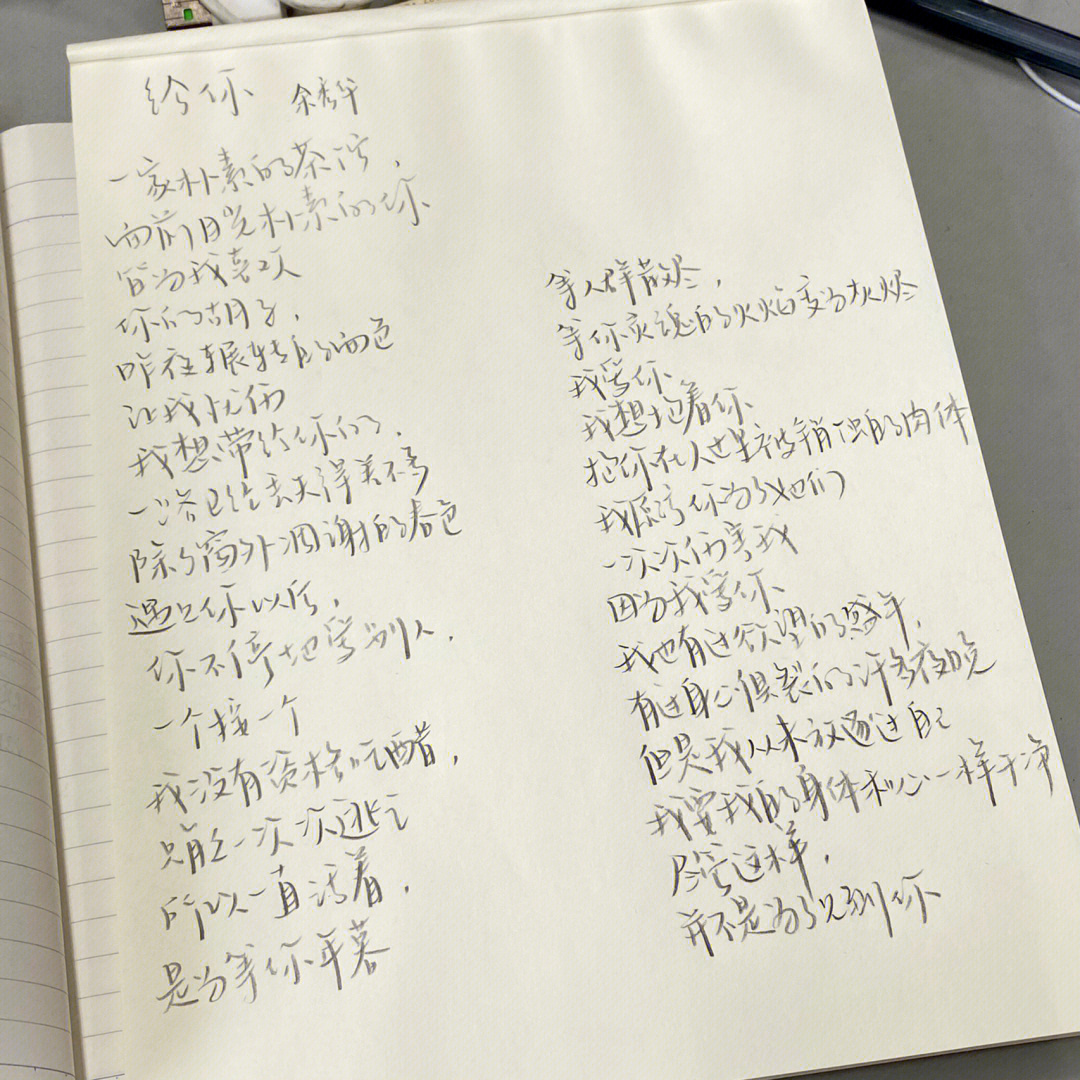 给你 余秀华
一家朴素的茶馆，
面前目光朴素的你
皆为我喜欢
你的胡子，
昨夜辗转的面色
让我忧伤
我想带给你的，
一路已经丢失得差不多
除了窗外凋谢的春色
遇见你以后，
你不停地爱别人，
一个接一个
我没有资格吃醋，
只能一次次逃亡
所以一直活着，
是为等你年暮
等人群散尽，
等你灵魂的火焰变为灰烬
我爱你
我想抱着你
抱你在人世里被销蚀的肉体
我原谅你为了她们
一次次伤害我
因为我爱你
我也有过欲望的盛年，
有过身心俱裂的许多夜晚
但是我从未放逐过自己
我要我的身体和心一样干净
尽管这样，
并不是为了见到你